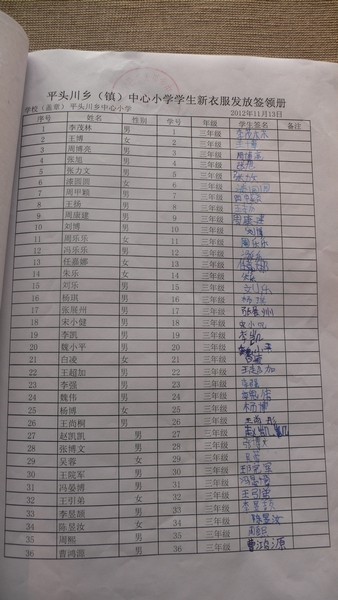 平头川乡（镇）中心小学学生新衣服发放签领册
学校（盖章）平头川乡中心小学 2012年11月13日
序号 姓名 性别 学号 年级 学生签名 备注
1 李茂林 男 1 三年级 李茂林
2 王博 女 2 三年级
3 周博亮 男 3 三年级
4 张旭 男 4 三年级 张旭
5 张力文 男 5 三年级 张力文
6 漆圆圆 女 6 三年级
7 周甲颖 男 7 三年级
8 王扬 男 8 三年级
9 周康建 男 9 三年级 周康建
10 刘博 男 10 三年级 刘博
11 周乐乐 女 11 三年级 周乐乐
12 冯乐乐 男 12 三年级
13 任嘉娜 女 13 三年级
14 朱乐 女 14 三年级 朱乐
15 刘乐 男 15 三年级 刘乐
16 杨琪 男 16 三年级 杨琪
17 张展州 男 17 三年级 张展州
18 宋小健 男 18 三年级
19 李凯 男 19 三年级 李凯
20 魏小平 男 20 三年级
21 白凌 女 21 三年级
22 王超加 男 22 三年级 王超加
23 李强 男 23 三年级 李强
24 魏伟 男 24 三年级
25 杨博 女 25 三年级 杨博
26 王尚桐 男 26 三年级
27 赵凯凯 男 27 三年级 赵凯凯
28 张博文 男 28 三年级
29 吴蓉 女 29 三年级 吴蓉
30 王院军 男 30 三年级
31 冯晏博 男 31 三年级
32 王引弟 女 32 三年级 王引弟
33 李昱颉 男 33 三年级
34 陈昱汝 女 34 三年级 陈昱汝
35 周熙 男 35 三年级
36 曹鸿源 男 36 三年级 曹鸿源